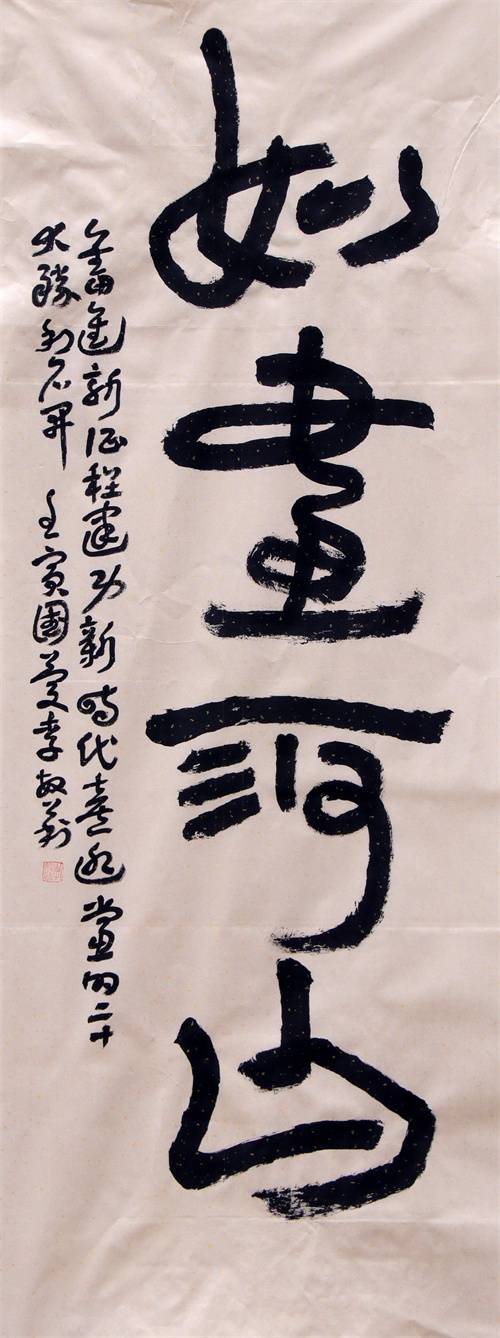 如畫河山
奮進新征程建功新時代喜迎黨的二十
大勝利召開 壬寅國李